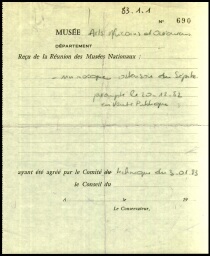 83.1.1
N° 690
MUSÉE Arts africains et océaniens
DÉPARTEMENT
Reçu de la Réunion des Musées Nationaux :
un masque du Sepik
le 20.12.82
en vente publique
ayant été agréé par le Comité du 83
le Conseil du
A le 19
Le Conservateur,